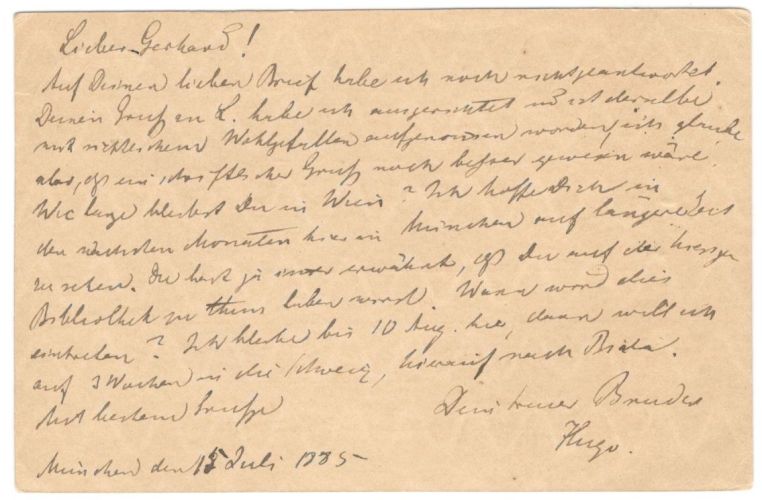 Lieber Gerhard!
Auf Deinen lieben Brief habe ich noch nicht geantwortet.
Deinen Gruß an L. habe ich ausgerichtet und ist derselbe
mit sichtlichem Wohlgefallen aufgenommen worden, ich glaube
aber, daß ein schriftlicher Gruß noch besser gewesen wäre.
Wie lange bleibst Du in Wien? Ich hoffe Dich in
den nächsten Monaten hier in München auf längere Zeit
zu sehen. Du hast ja immer erwähnt, daß Du auf der hiesigen
Bibliothek zu thun haben wirst. Wann wird dies
eintreten? Ich bleibe bis 10 Aug. hier, dann will ich
auf 3 Wochen in die Schweiz, hierauf nach
Mit bestem Gruße
Dein treuer Bruder
Hugo.
München den 15 Juli 1885